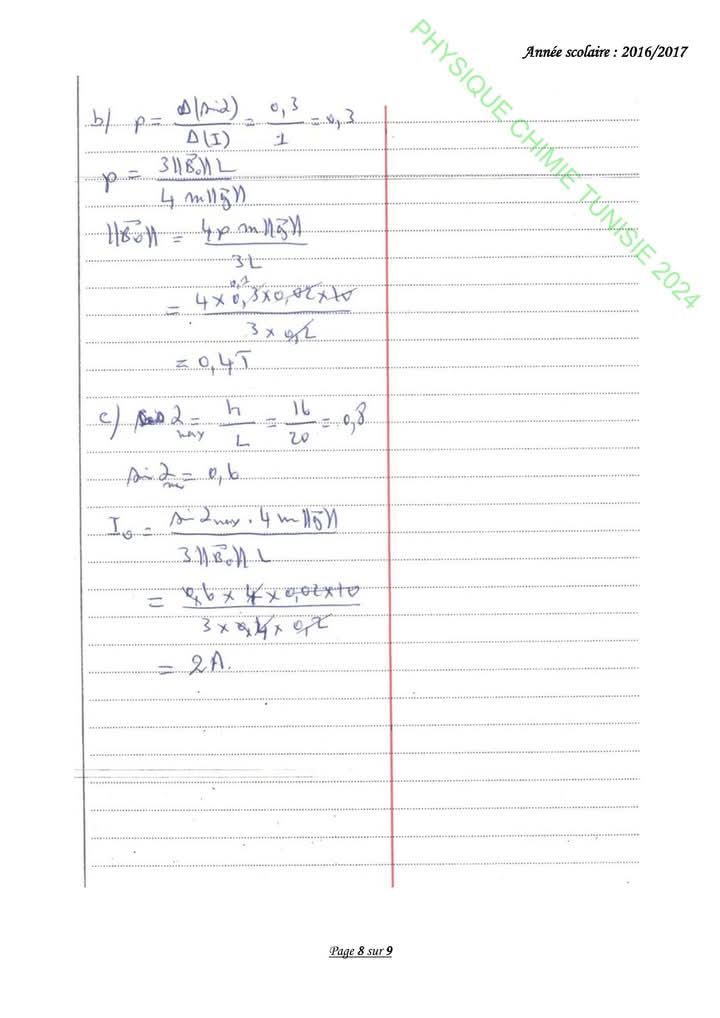 Année scolaire : 2016/2017
PHYSIQUE CHIMIE TUNISIE 2024
b) p = Δ(sin α) / Δ(I) = 0,3 / 1 = 0,3
p = 3||B₀|| L / 4 m||g||
||B₀|| = 4p m||g|| / 3L
= 4 x 0,3 x 0,02 x 10 / 3 x 0,2
= 0,4T
c) cos α max = h / L = 16 / 20 = 0,8
sin α max = 0,6
I₀ = sin α max . 4 m||g|| / 3||B₀|| L
= 0,6 x 4 x 0,02 x 10 / 3 x 0,4 x 0,2
= 2A.
Page 8 sur 9